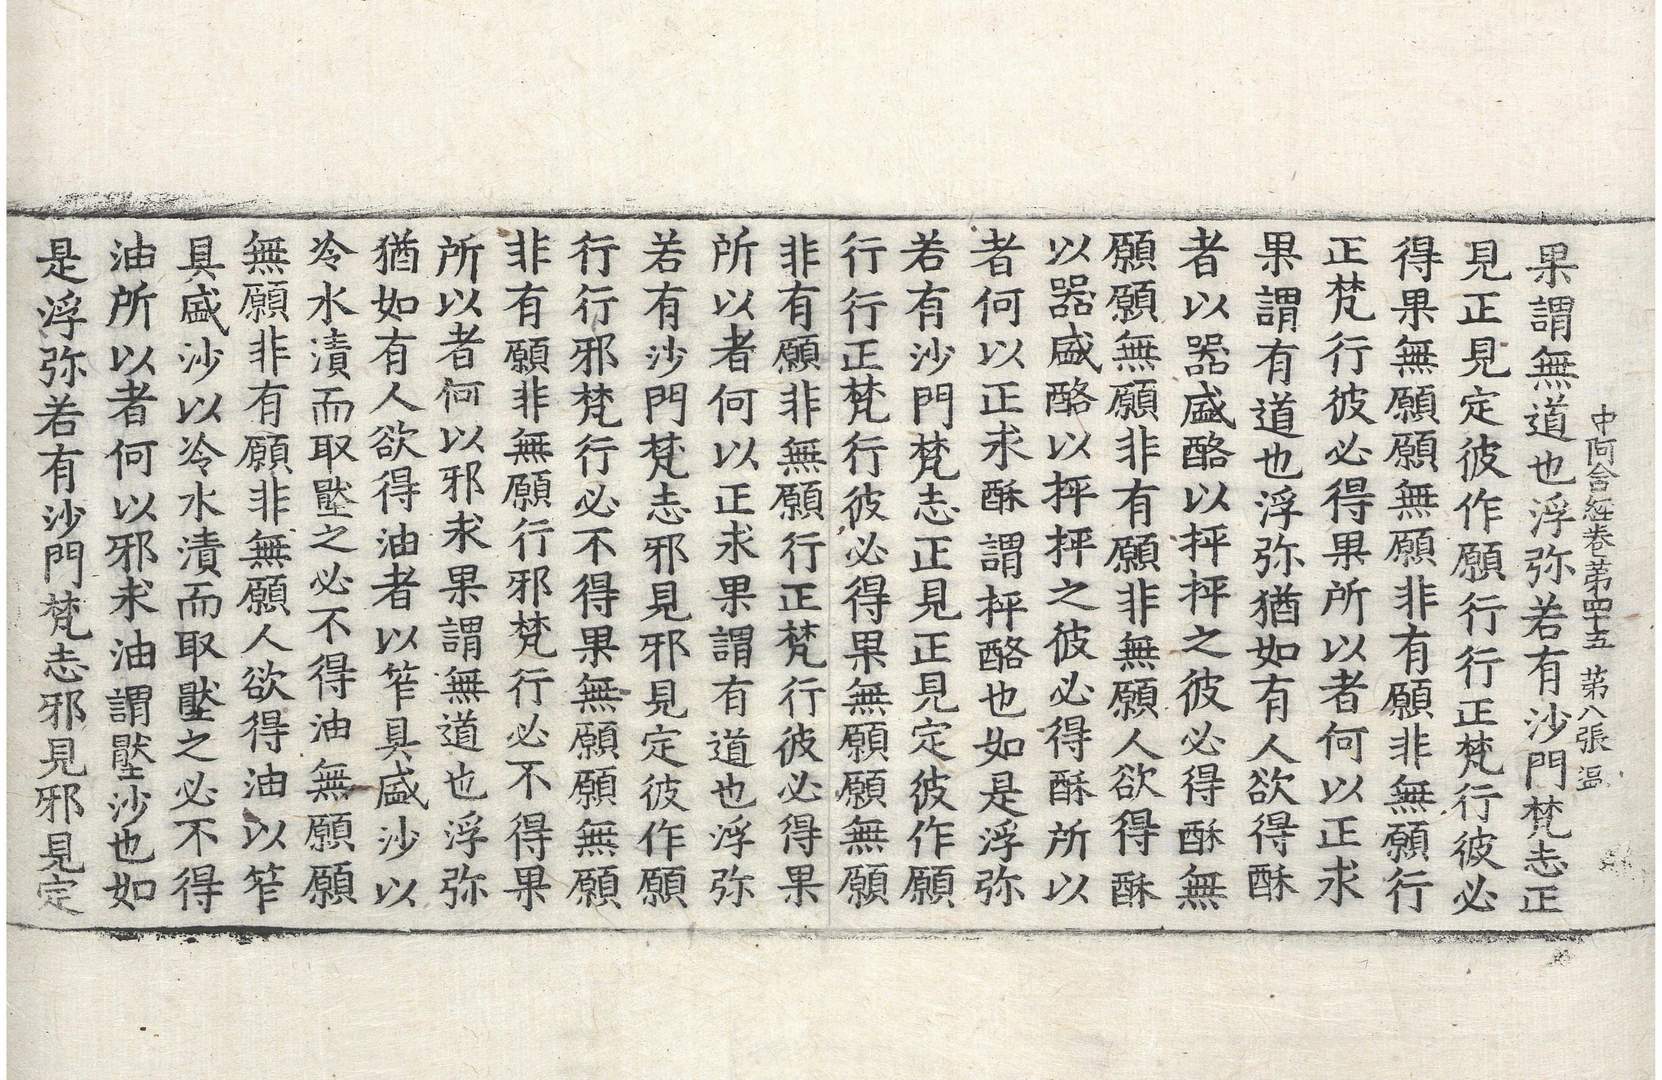 中阿含經卷苐四十五 苐八張 温
果謂無道也浮弥若有沙門梵志正
見正見定彼作願行行正梵行彼必
得果無願願無願非有願非無願行
正梵行彼必得果所以者何以正求
果謂有道也浮弥猶如有人欲得酥
者以器盛酪以抨抨之彼必得酥無
願願無願非有願非無願人欲得酥
以器盛酪以抨抨之彼必得酥所以
者何以正求酥謂抨酪也如是浮弥
若有沙門梵志正見正見定彼作願
行行正梵行彼必得果無願願無願
非有願非無願行正梵行彼必得果
所以者何以正求果謂有道也浮弥
若有沙門梵志邪見邪見定彼作願
行行邪梵行必不得果無願願無願
非有願非無願行邪梵行必不得果
所以者何以邪求果謂無道也浮弥
猶如有人欲得油者以笮具盛沙以
冷水漬而取壓之必不得油無願願
無願非有願非無願人欲得油以笮
具盛沙以冷水漬而取壓之必不得
油所以者何以邪求油謂壓沙也如
是浮弥若有沙門梵志邪見邪見定